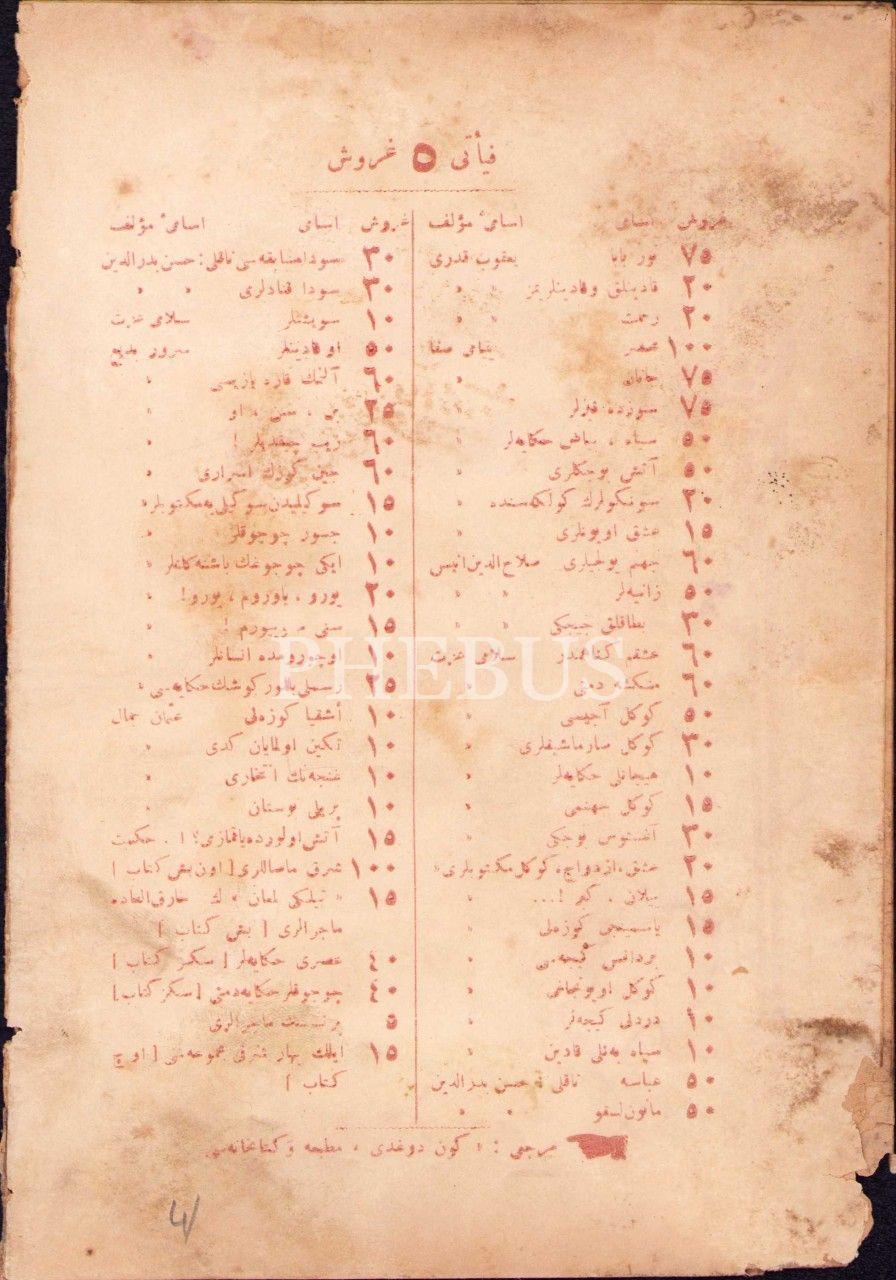 فیأتی ٥ غروش
غروش اسامی اسامیٔ مؤلف
٧٥ نور بابا یعقوب قدری
٢٠ قادینلق وقادینلریمز » »
٢٠ رحمت » »
١٠٠ محشر پیامی صفا
٧٥ جانان »
٧٥ سوزده قیزلر »
٥٠ سیاه ، بیاض حکایه‌لر »
٥٠ آتش بوجکلری »
٢٠ سونگولرك کولکه‌سنده »
١٥ عشق اویونلری »
٦٠ جهنم یولجیلری صلاح الدین انیس
٥٠ زانیه‌لر » »
٣٠ بطاقلق چیچکی » »
٦٠ عشقی کناهمدر سلامی عزت
٦٠
٥٠ کوکل آجیسی »
٣٠ کوکل صارماشیقلری »
١٠ هیجانلی حکایه‌لر »
١٥ کوکل جهنمی »
٣٠ آغستوس بوجکی »
٢٠ عشق، ازدواج، کوکل مکتوبلری »
١٥ ییلانی ، کیم !... »
١٥ یاسمینجی کوزه‌لی »
١٠ کیجه‌سی »
١٠ کوکل اویونجاغی »
١٠ دردلی کیجه‌لر »
١٠ سیاه به‌نلی قادین »
٥٠ عباسه ناقلی : حسن بدرالدین
٥٠ مانون لسقو » »
غروش اسامی اسامیٔ مؤلف
٣٠ سودا مسابقه‌سی ناقلی : حسن بدرالدین
٣٠ سودا قنادلری » »
١٠ سویشنلر سلامی عزت
٥٠ او قادینلر سرور بدیع
٦٠ آلنمك قاره یازیسی »
٢٥ بن ، سن ، او »
٦٠ زیپ چیقدیلر ! »
٦٠ جین کوزك اسراری »
١٥ سوکیلیدن سوکیلی‌یه مکتوبلر »
١٠ جسور چوجوقلر »
١٠ ایکی چوجوغك باشنه کلنلر »
٢٠ یورو ، یاوروم ، یورو ! »
١٥ سنی !
١٠ اوچورومده انسانلر »
٢٥ رسملی بللور کوشك حکایه‌سی »
١٠ أشقیا کوزه‌لی عثمان جمال
١٠ تکین اولمایان کدی »
١٠ غنجه‌نك انتحاری »
١٠ پریلی بوستان »
١٥ آتش اولورده یاقمازمی؟ ا . حکمت
١٠٠ شرق ماصاللری [ اون بش کتاب ]
١٥ « تیلکی لمعان » ك خارق العاده
ماجرالری [ بش کتاب ]
٤٠ عصری حکایه‌لر [ سکز کتاب ]
٤٠ چوجوقلر حکایه دمتی [ سکز کتاب ]
٥ پرنسسك ماجرالری
١٥ ایلك بهار شرقی مجموعه‌سی [ اوچ
کتاب ]
مرجعی : « کون دوغدی » مطبعه وکتابخانه‌سی
4
PHEBUS